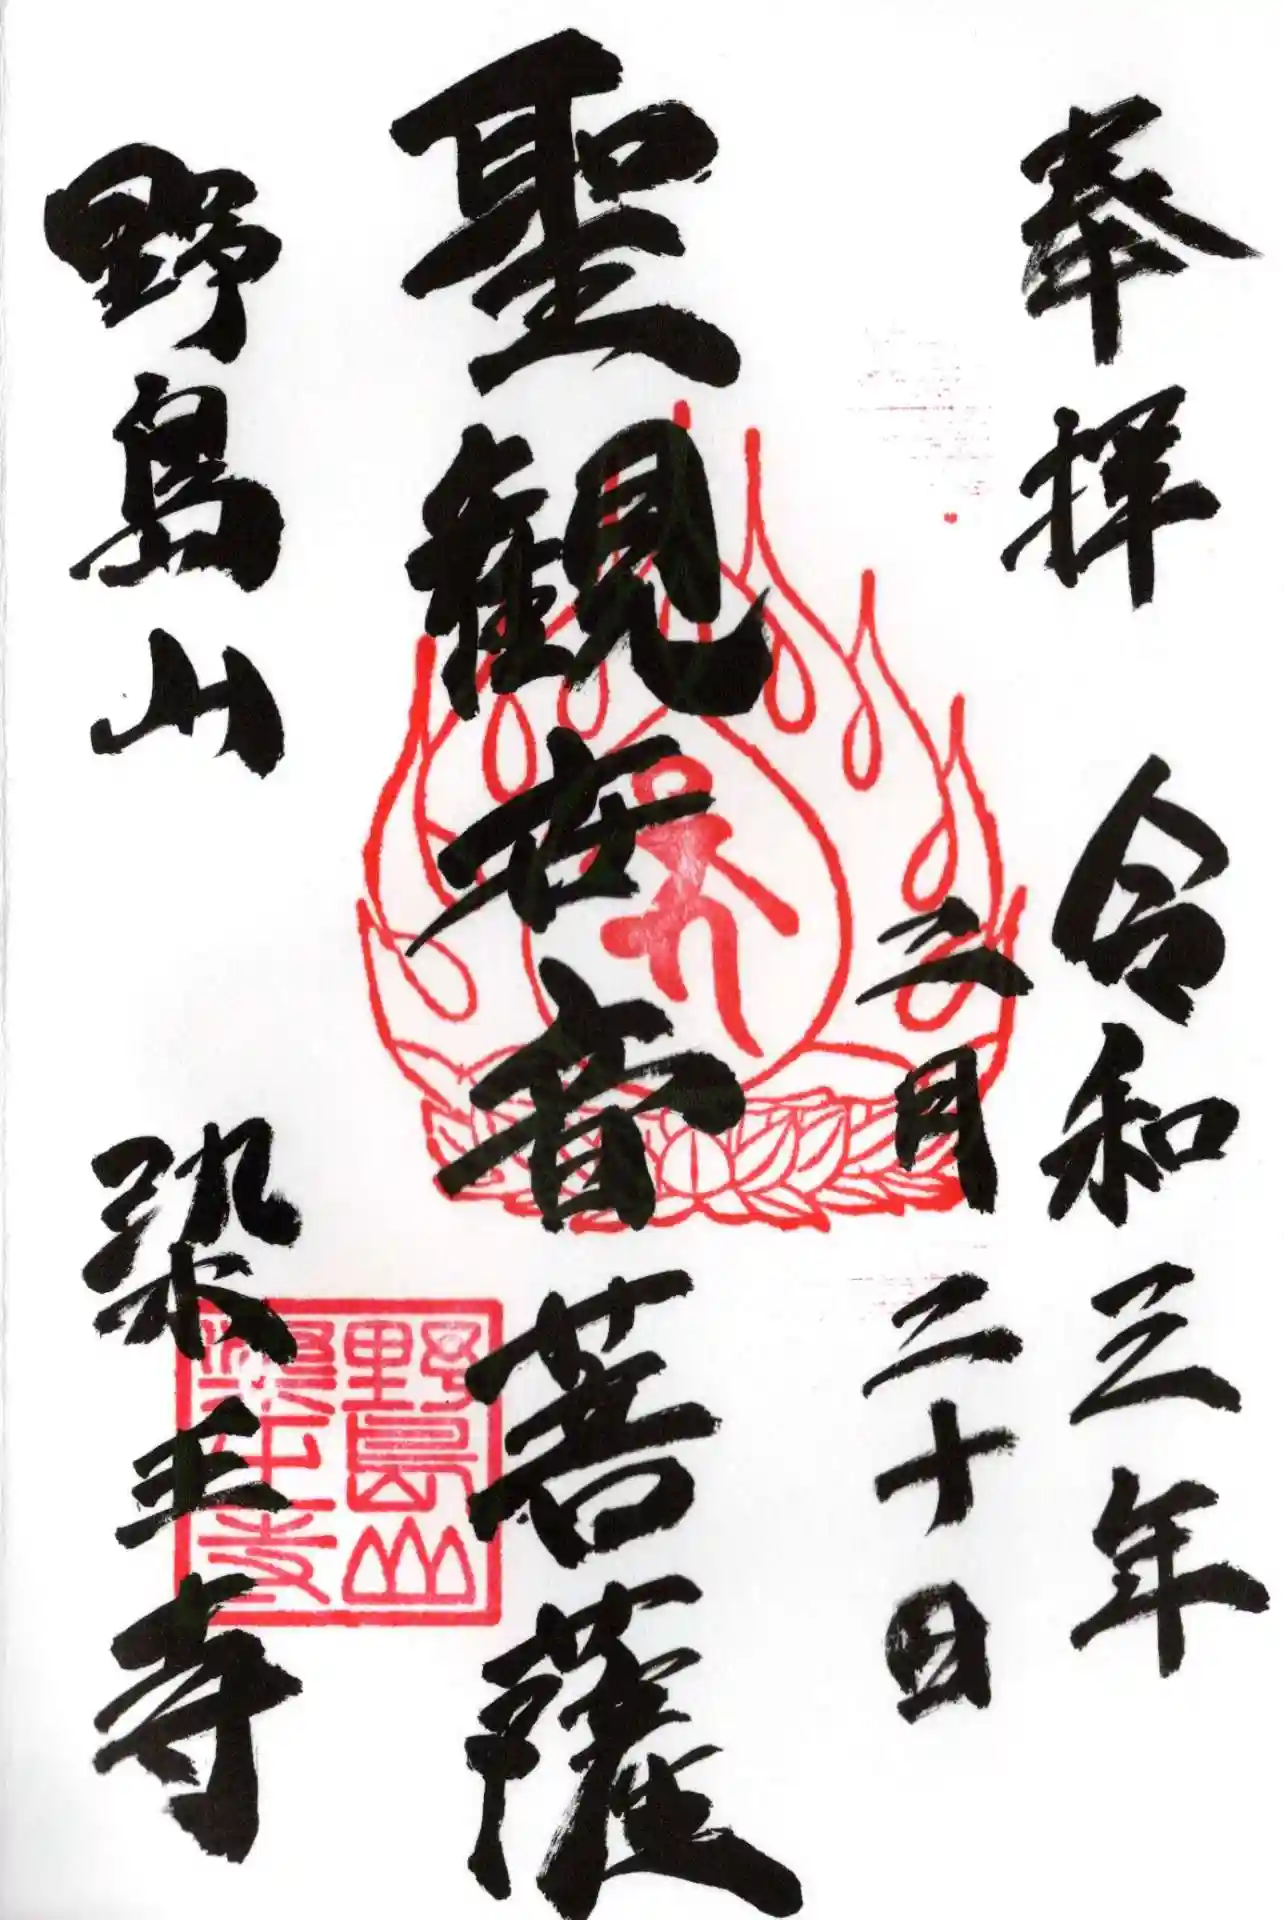 奉拝 令和三年
三月二十日
聖観世音菩薩
野島山 染王寺
野島山
染王寺